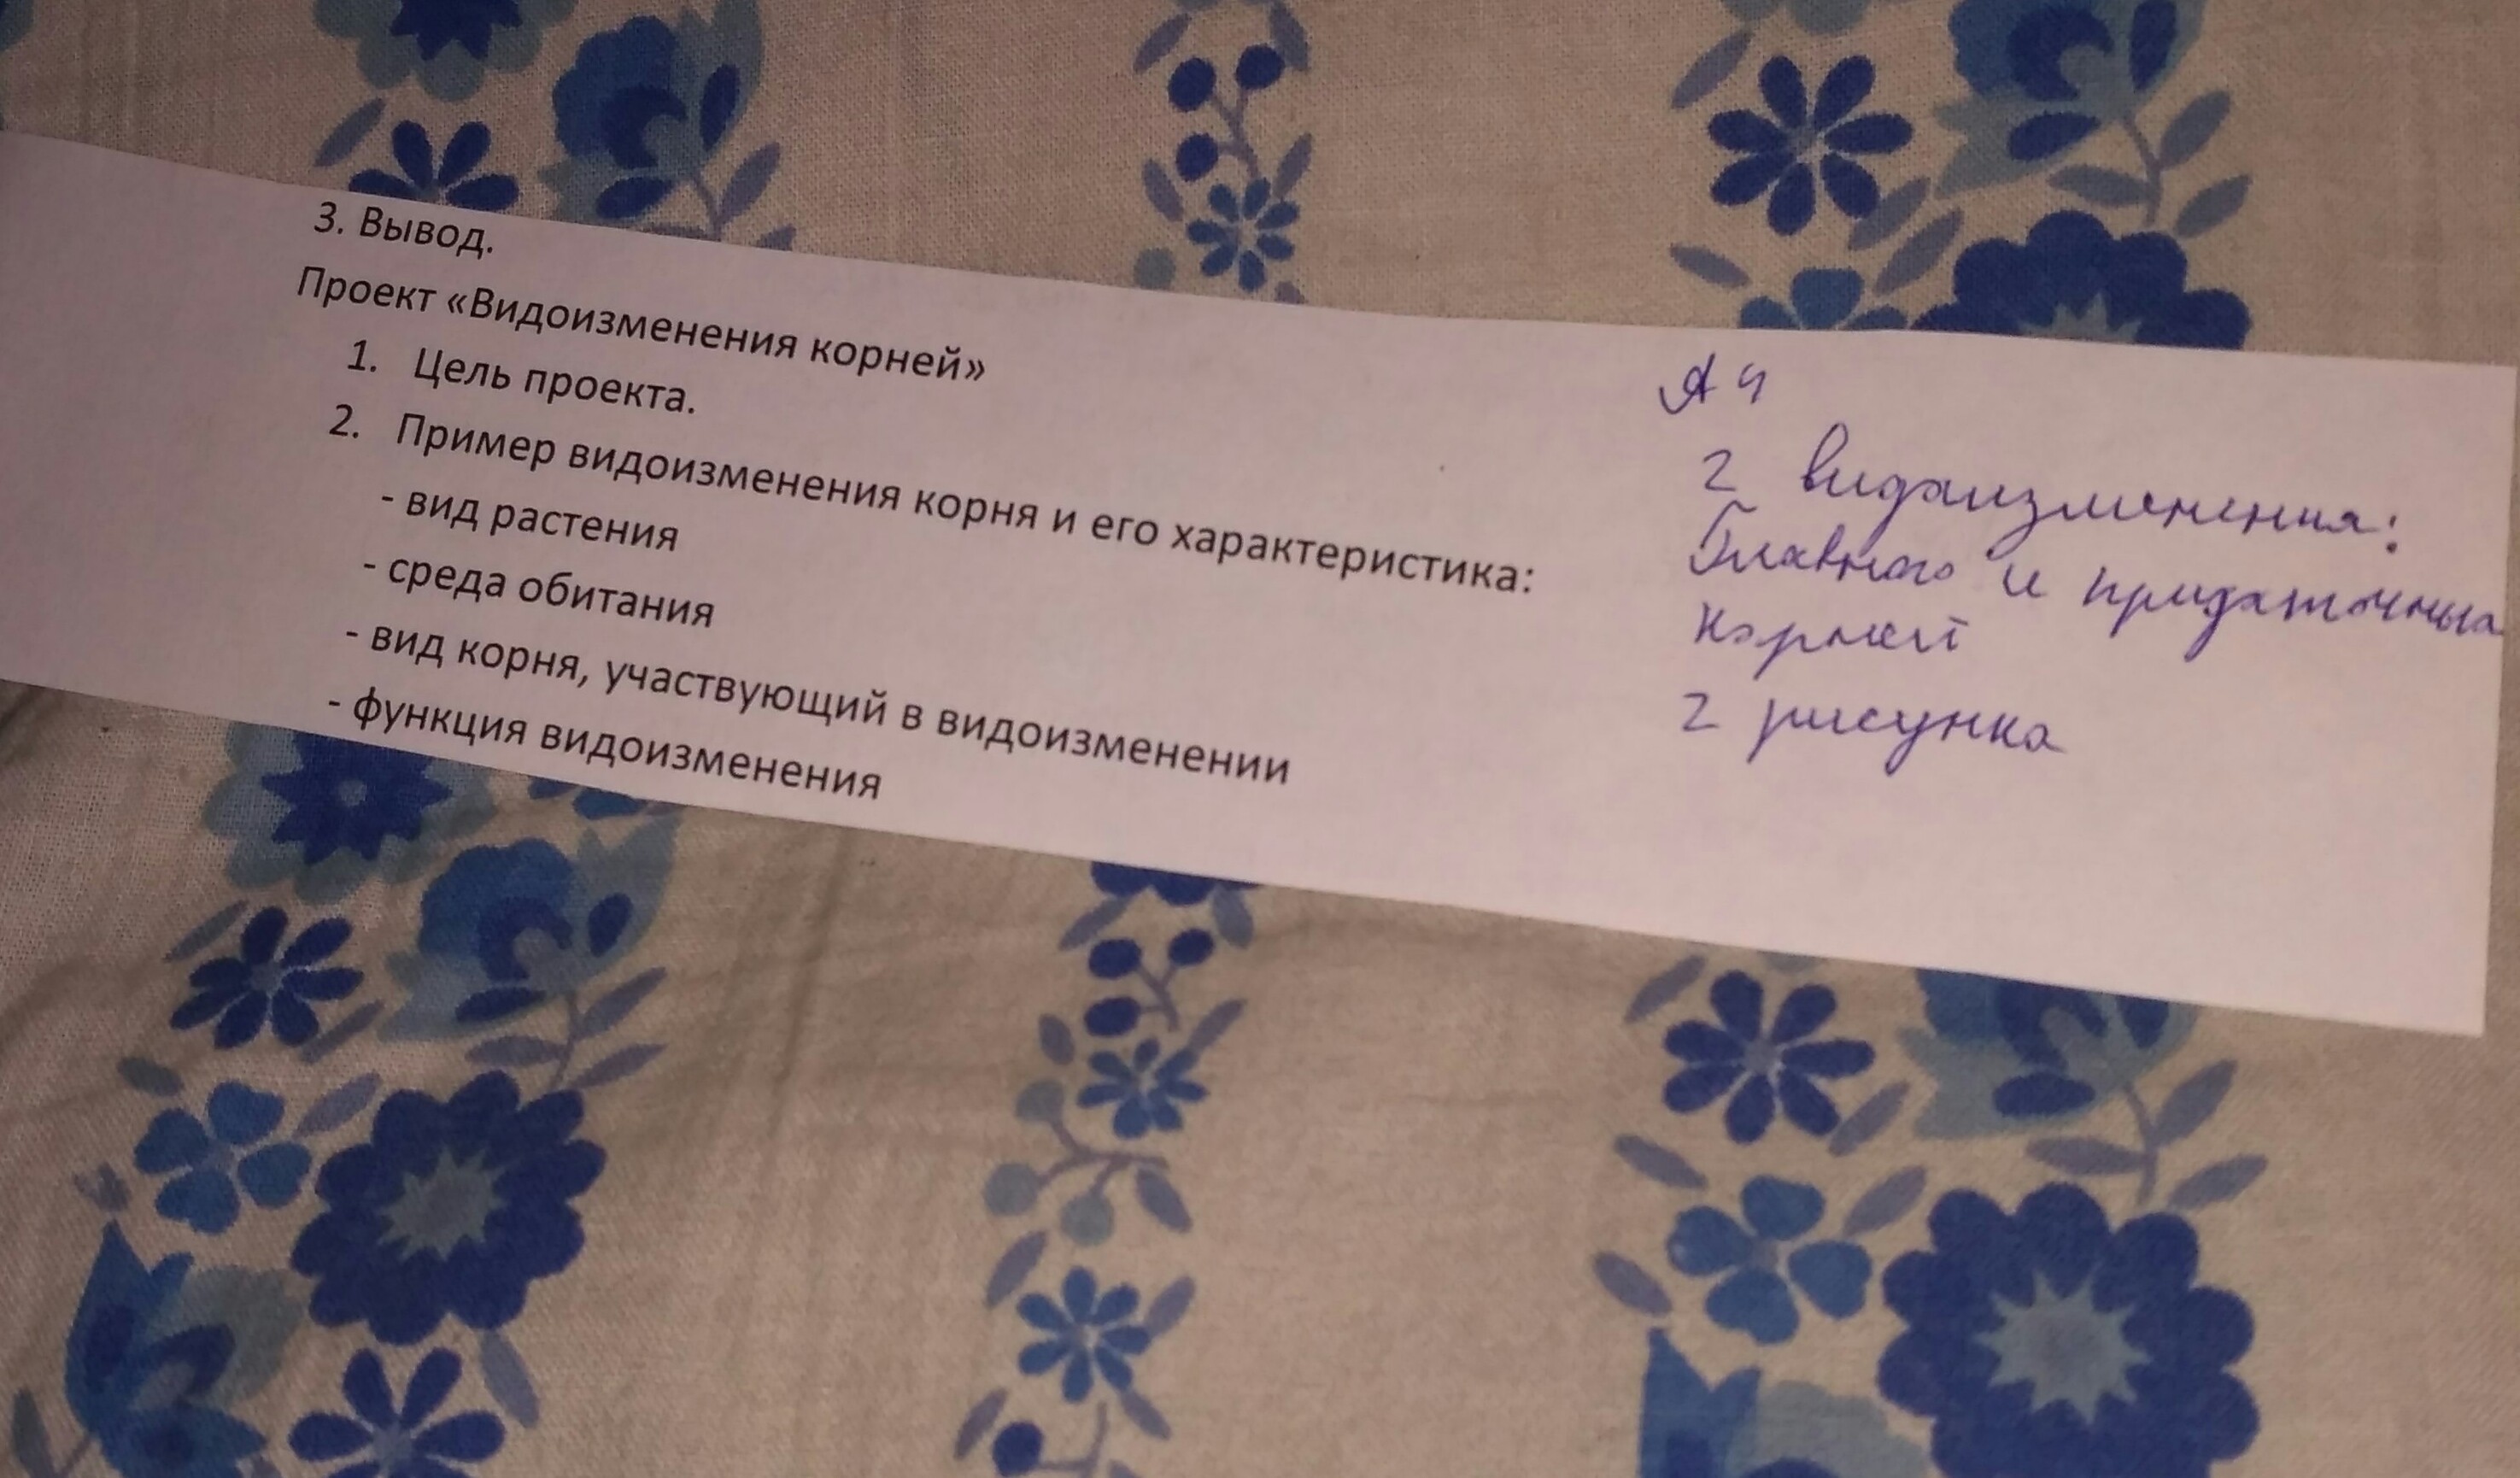 3. Вывод.
Проект «Видоизменения корней»
1. Цель проекта.
2. Пример видоизменения корня и его характеристика:
- вид растения
- среда обитания
- вид корня, участвующий в видоизменении
- функция видоизменения
А 4
2 видаизменения:
Главного и придаточных
корней
2 рисунка